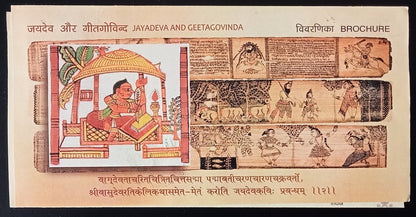 जयदेव और गीतगोविन्द JAYADEVA AND GEETAGOVINDA विवरणिका BROCHURE
वाग्देवताचरितचित्रितचित्तसद्मा पद्मावतीचरणचारणचक्रवर्ती
श्रीवासुदेवरतिकेलिकथासमेत-मेतं करोति जयदेवकविः प्रबन्धम् ।।२।।